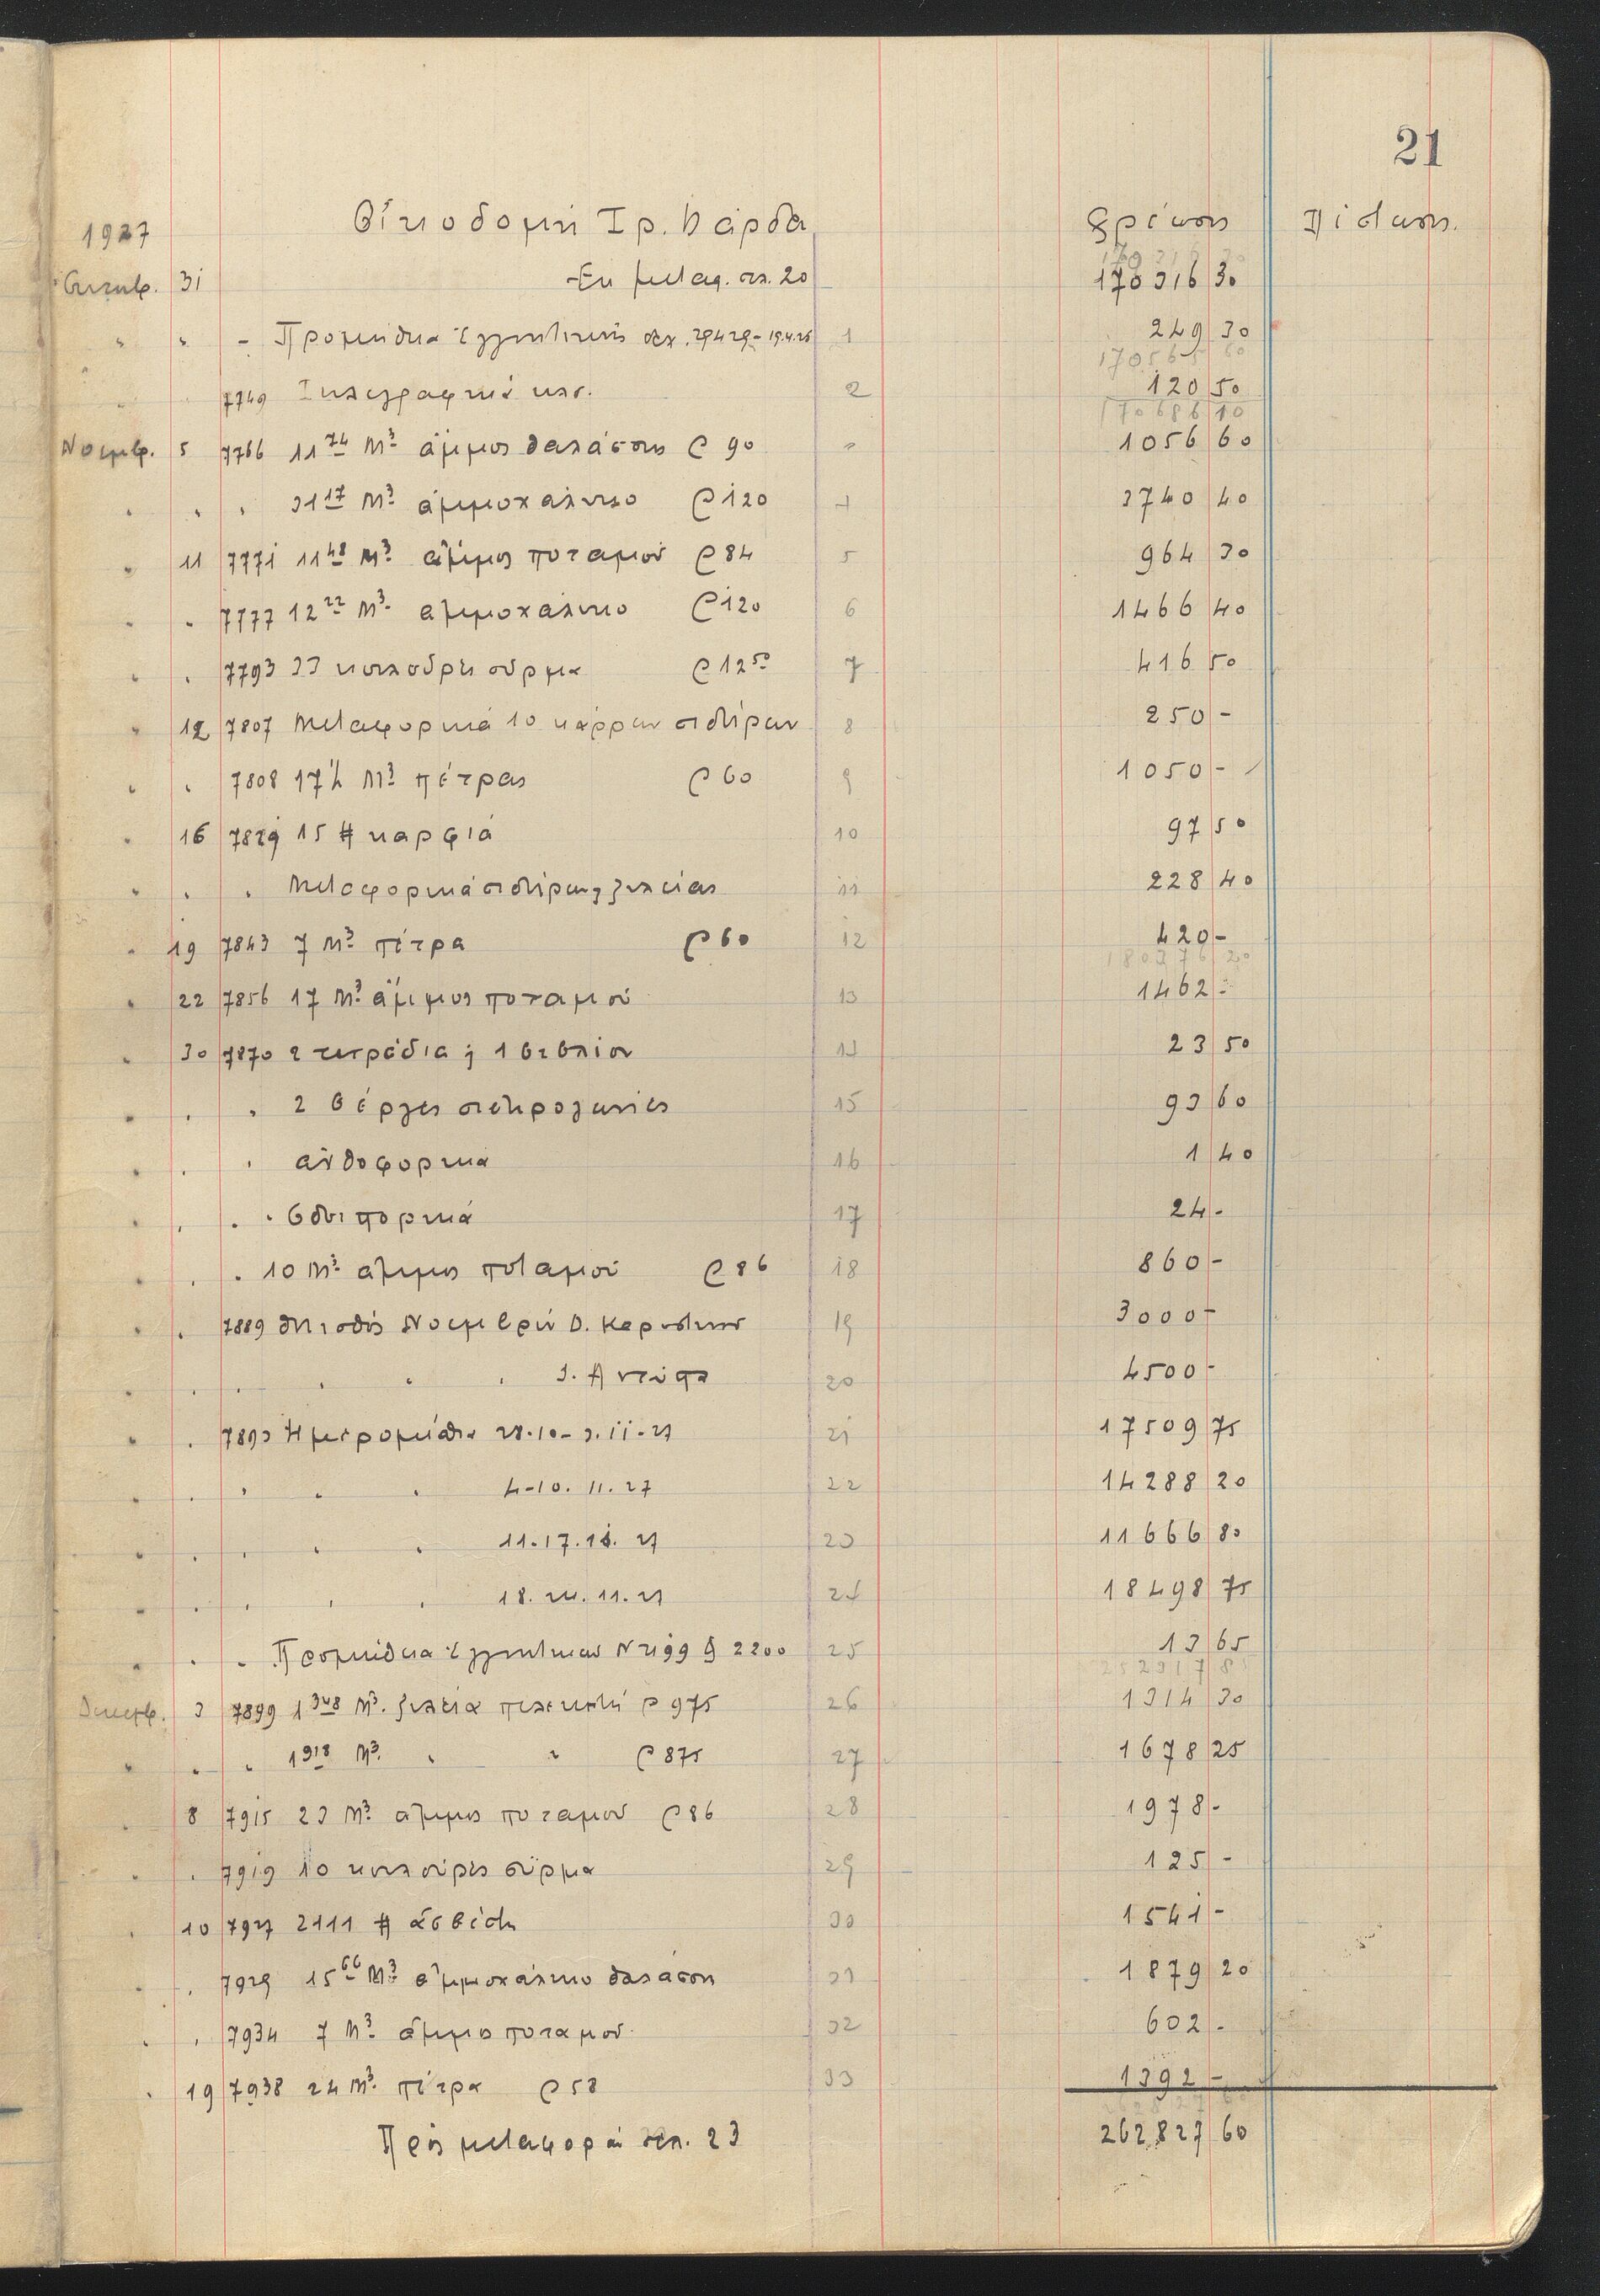 21
1927 Οἰκοδομή Ἰρ. Κάρδα Χρέωσις Πίστωσις.
Ὀκτωβ. 31 Ἐκ μεταφ. σελ. 20 170316 30
" " - Προμήθεια 1 249 30
170565 60
7749 2 120 50
170686 10
Νοεμβ. 5 7766 11 74 M3 ἄμμος θαλάσσης @ 90 1056 60
" " " 31 17 M3 ἀμμοχάλικο @ 120 4 3740 40
" 11 7771 11 48 M3 ἄμμος ποταμοῦ @ 84 5 964 30
" " 7777 12 22 M3 ἀμμοχάλικο @ 120 6 1466 40
" " 7793 33 κουλούρες σύρμα @ 12 50 7 416 50
" 12 7807 Μεταφορικά 10 κάρρων σιδήρων 8 250 -
" " 7808 17 ½ M3 πέτρας @ 60 9 1050 -
" 16 7829 15 # καρφιά 10 97 50
" " " Μεταφορικά σιδήρων ξυλείας 11 228 40
" 19 7843 7 M3 πέτρα @ 60 12 420 -
180376 20
" 22 7856 17 M3 ἄμμος ποταμοῦ 13 1462 -
" 30 7870 2 τετράδια & 1 βιβλίον 14 23 50
" " " 2 βέργες σιδηρογωνιές 15 93 60
" " " ἀχθοφορικά 16 1 40
" " " Ὁδοιπορικά 17 24 -
" " " 10 M3 ἄμμος ποταμοῦ @ 86 18 860 -
" " 7889 Μισθός Νοεμβρίου 19 3000 -
" " " " " " 20 4500 -
" " 7893 Ἡμερομίσθια 28.10 - 3.11.27 21 17509 75
" " " " " 4-10. 11. 27 22 14288 20
" " " " " 11.17.11. 27 23 11666 80
" " " " " 18. 24. 11. 27 24 18498 75
" " " Προμήθεια 2200 25 13 65
252917 85
Δεκεμβ. 3 7899 1 348 M3. ξυλεία πελεκητή @ 975 26 1314 30
" " " 1 918 M3. " " @ 875 27 1678 25
" 8 7915 23 M3 ἄμμος ποταμοῦ @ 86 28 1978 -
" " 7919 10 κουλούρες σύρμα 29 125 -
" 10 7927 2111 # ἀσβέστη 30 1541 -
" " 7929 15 66 M3 ἀμμοχάλικο θαλάσσης 31 1879 20
" " 7934 7 M3 ἄμμος ποταμοῦ 32 602 -
" 19 7938 24 M3. πέτρα @ 58 33 1392 -
Πρός μεταφοράν σελ. 23 262827 60